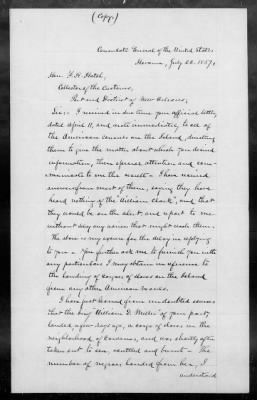 (Copy.)
Consulate General of the United States.
Havana, July 22. 1857.
Hon. F. H. Hatch,
Collector of the Customs,
Port and District of New Orleans,
Sir: I received in due time your official letter,
dated April 11, and wrote immediately to all of
the American consuls on the Island, directing
them to give the matter about which you desired
information, their special attention and com-
municate to me the result. I have received
answers from most of them, saying they have
heard nothing of the William Clark, and that
they would be on the alert and report to me
without delay any news that might reach them.
The above is my excuse for the delay in replying
to you. You further ask me to furnish you with
any particulars I may obtain in reference to
the landing of cargoes of slaves on the Island
from any other American vessels.
I have just learned from undoubted sources
that the brig William D. Miller of your port,
landed, a few days ago, a cargo of slaves in the
neighborhood of Cardenas, and was shortly after
taken out to sea, scuttled and burnt. The
number of negroes landed from her, I
understand